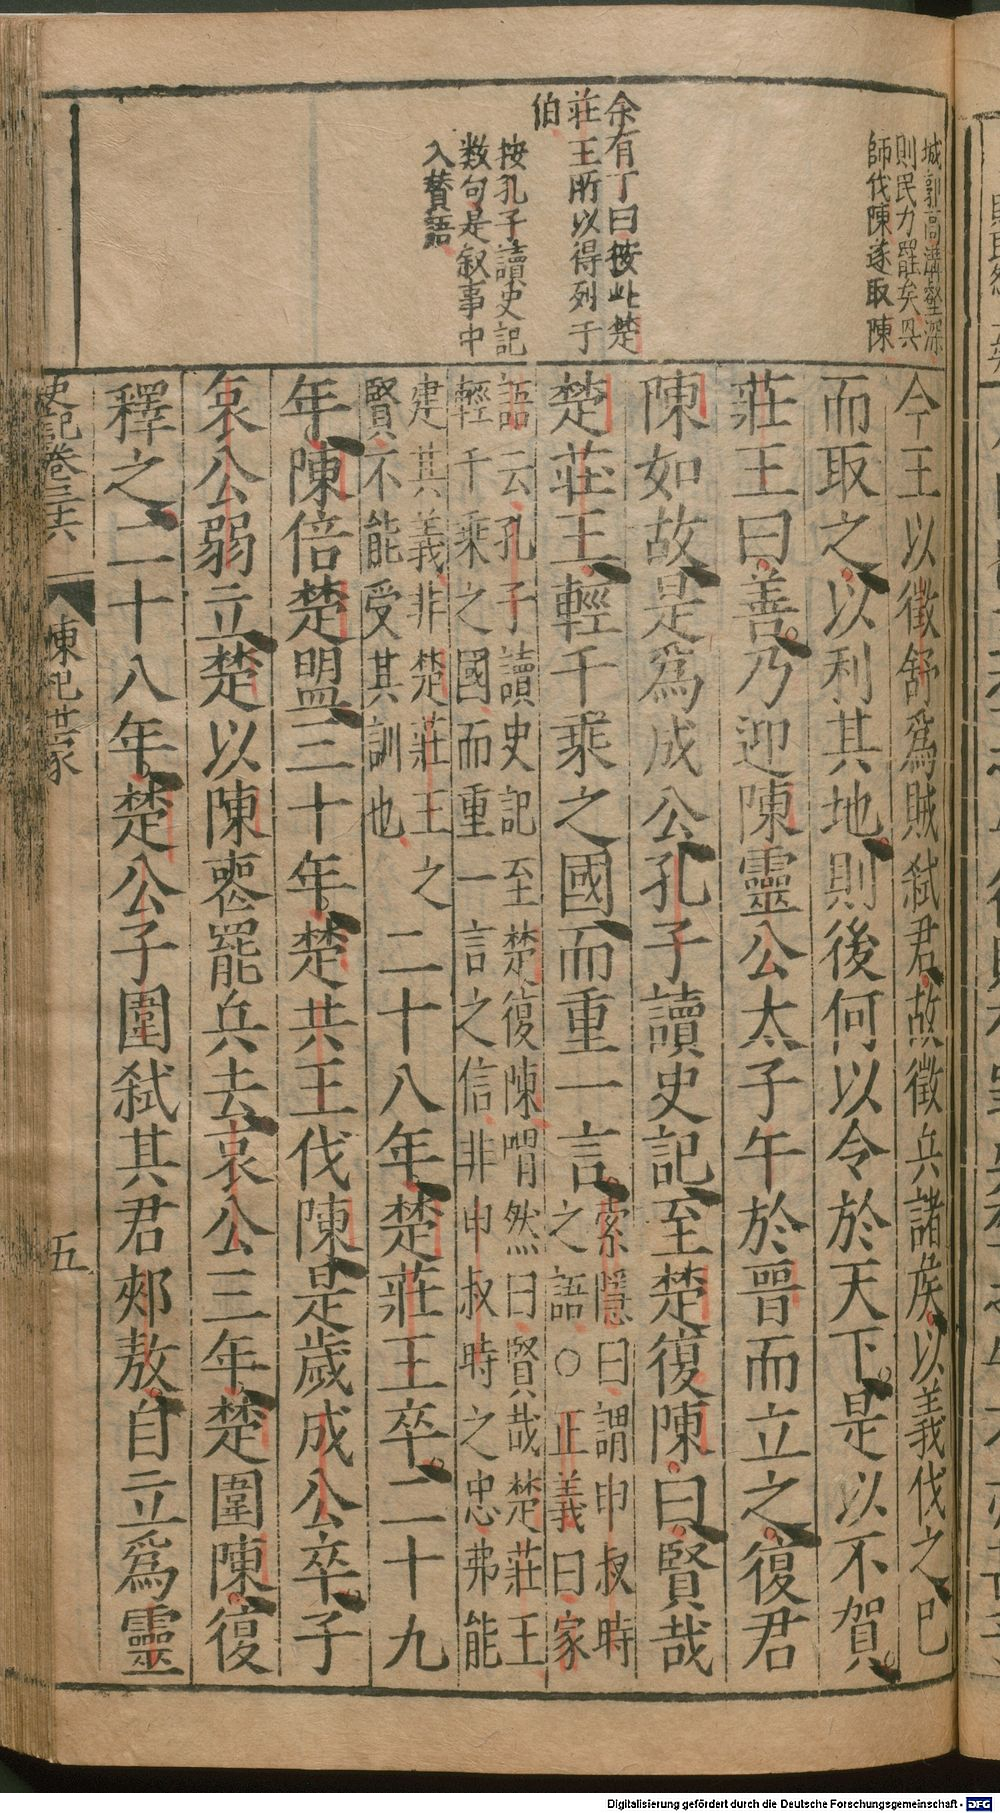 城郭高溝壑深
則民力罷矣興
師伐陳遂取陳
余有丁曰按此楚
莊王所以得列于
伯
按孔子讀史記
数句是叙事中
入賛語
今王以徵舒爲賊弑君故徵兵諸侯以義伐之已
而取之以利其地則後何以令於天下是以不賀
莊王曰善乃迎陳靈公太子午於晉而立之復君
陳如故是爲成公孔子讀史記至楚復陳曰賢哉
楚莊王輕千乘之國而重一言索隱曰謂申叔時
之語○正義曰家
語云孔子讀史記至楚復陳喟然曰賢哉楚莊王
輕千乘之國而重一言之信非申叔時之忠弗能
建其義非楚莊王之
賢不能受其訓也
二十八年楚莊王卒二十九
年陳倍楚盟三十年楚共王伐陳是歲成公卒子
哀公弱立楚以陳喪罷兵去哀公三年楚圍陳復
釋之二十八年楚公子圍弑其君郟敖自立爲靈
史記卷三十六 陳杞世家 五
Digitalisierung gefördert durch die Deutsche Forschungsgemeinschaft - DFG